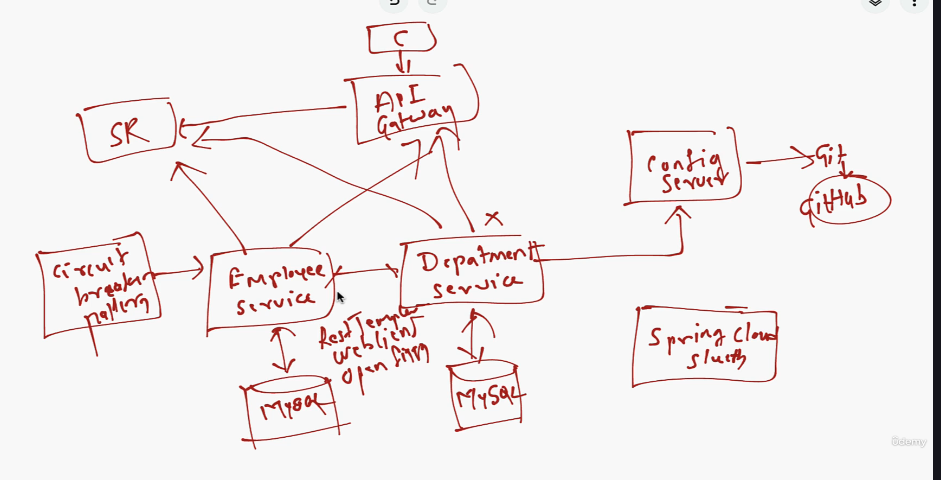 C
API
Gatway
SR
Config
Server
Git
GitHub
Circuit
breaker
pattern
Employee
service
Depatment
service
X
RestTemplate
Webclient
open fign
MySQL
MySQL
Spring Cloud
sluth
ûdemy